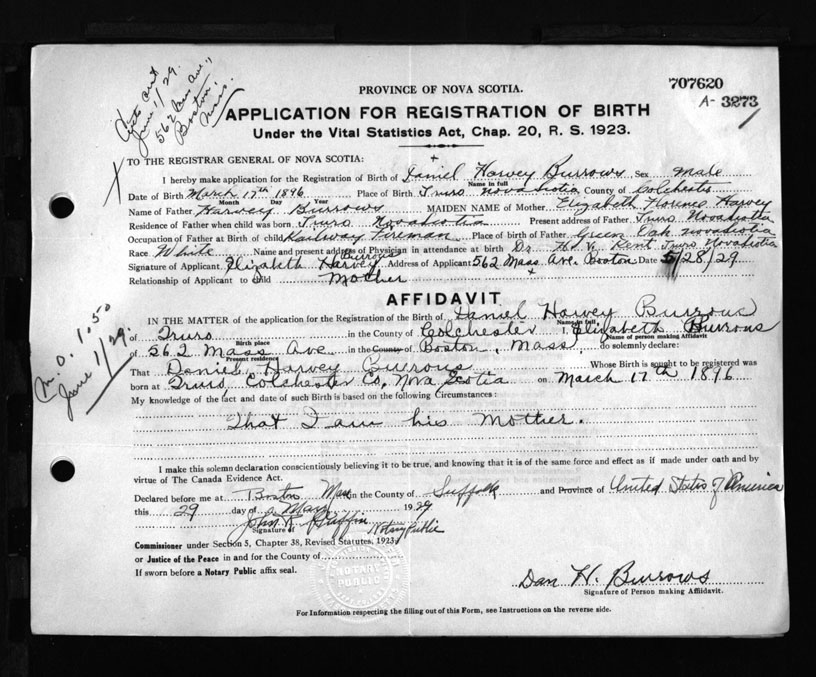 707620
A- 3273
PROVINCE OF NOVA SCOTIA.
APPLICATION FOR REGISTRATION OF BIRTH
Under the Vital Statistics Act, Chap. 20, R. S. 1923.
June 1/29.
562 Mass Ave.,
Boston,
Mass.
TO THE REGISTRAR GENERAL OF NOVA SCOTIA:
I hereby make application for the Registration of Birth of Daniel Harvey Burrows Sex Male
Name in full
Date of Birth March 17th 1896 Place of Birth Truro Nova Scotia County of Colchester
Month Day Year
Name of Father Harvey Burrows MAIDEN NAME of Mother Elizabeth Florence Harvey
Residence of Father when child was born Truro Nova Scotia Present address of Father Truro Nova Scotia
Occupation of Father at Birth of child Railway Fireman Place of birth of Father Green Oak Nova Scotia
Race White Name and present address of Physician in attendance at birth Dr H. V. Kent Truro Nova Scotia
Signature of Applicant Elizabeth Harvey Burrows Address of Applicant 562 Mass Ave. Boston Date 5/28/29
Relationship of Applicant to child Mother
M.O. 1.50
June 1/29.
AFFIDAVIT
IN THE MATTER of the application for the Registration of the Birth of Daniel Harvey Burrows
Name in full,
of Truro in the County of Colchester I, Elizabeth Burrows
Birth place Name of person making Affidavit
of 562 Mass Ave in the County of Boston, Mass, do solemnly declare:
Present residence
That Daniel Harvey Burrows Whose Birth is sought to be registered was
born at Truro, Colchester Co, Nova Scotia on March 17th 1896
My knowledge of the fact and date of such Birth is based on the following Circumstances:
That I am his Mother.
I make this solemn declaration conscientiously believing it to be true, and knowing that it is of the same force and effect as if made under oath and by
virtue of The Canada Evidence Act.
Declared before me at Boston Mass in the County of Suffolk and Province of United States of America
this 29 day of May 1929
John R.
Signature of Notary Public
Commissioner under Section 5, Chapter 38, Revised Statutes, 1923,
or Justice of the Peace in and for the County of
If sworn before a Notary Public affix seal.
NOTARY
PUBLIC
Dan H. Burrows
Signature of Person making Affidavit.
For Information respecting the filling out of this Form, see Instructions on the reverse side.